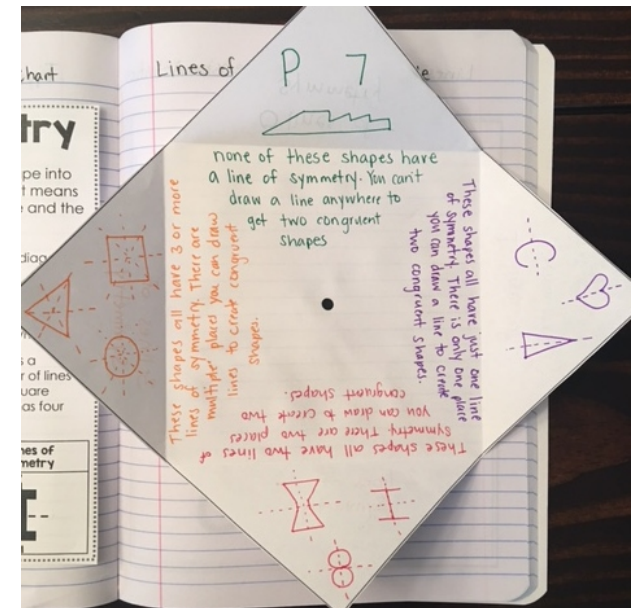 hart
try
pe into
t means
and the
diag
a
r of lines
uare
as four
nes of
metry
Lines of
P 7
none of these shapes have
a line of symmetry. You can't
draw a line anywhere to
get two congruent
shapes
These shapes all have just one line
of symmetry. There is only one place
you can draw a line to create
two congruent shapes.
These shapes all have two lines of
symmetry. There are two places
you can draw to create two
congruent shapes.
These shapes all have 3 or more
lines of symmetry. There are
multiple places you can draw
lines to create congruent
shapes.